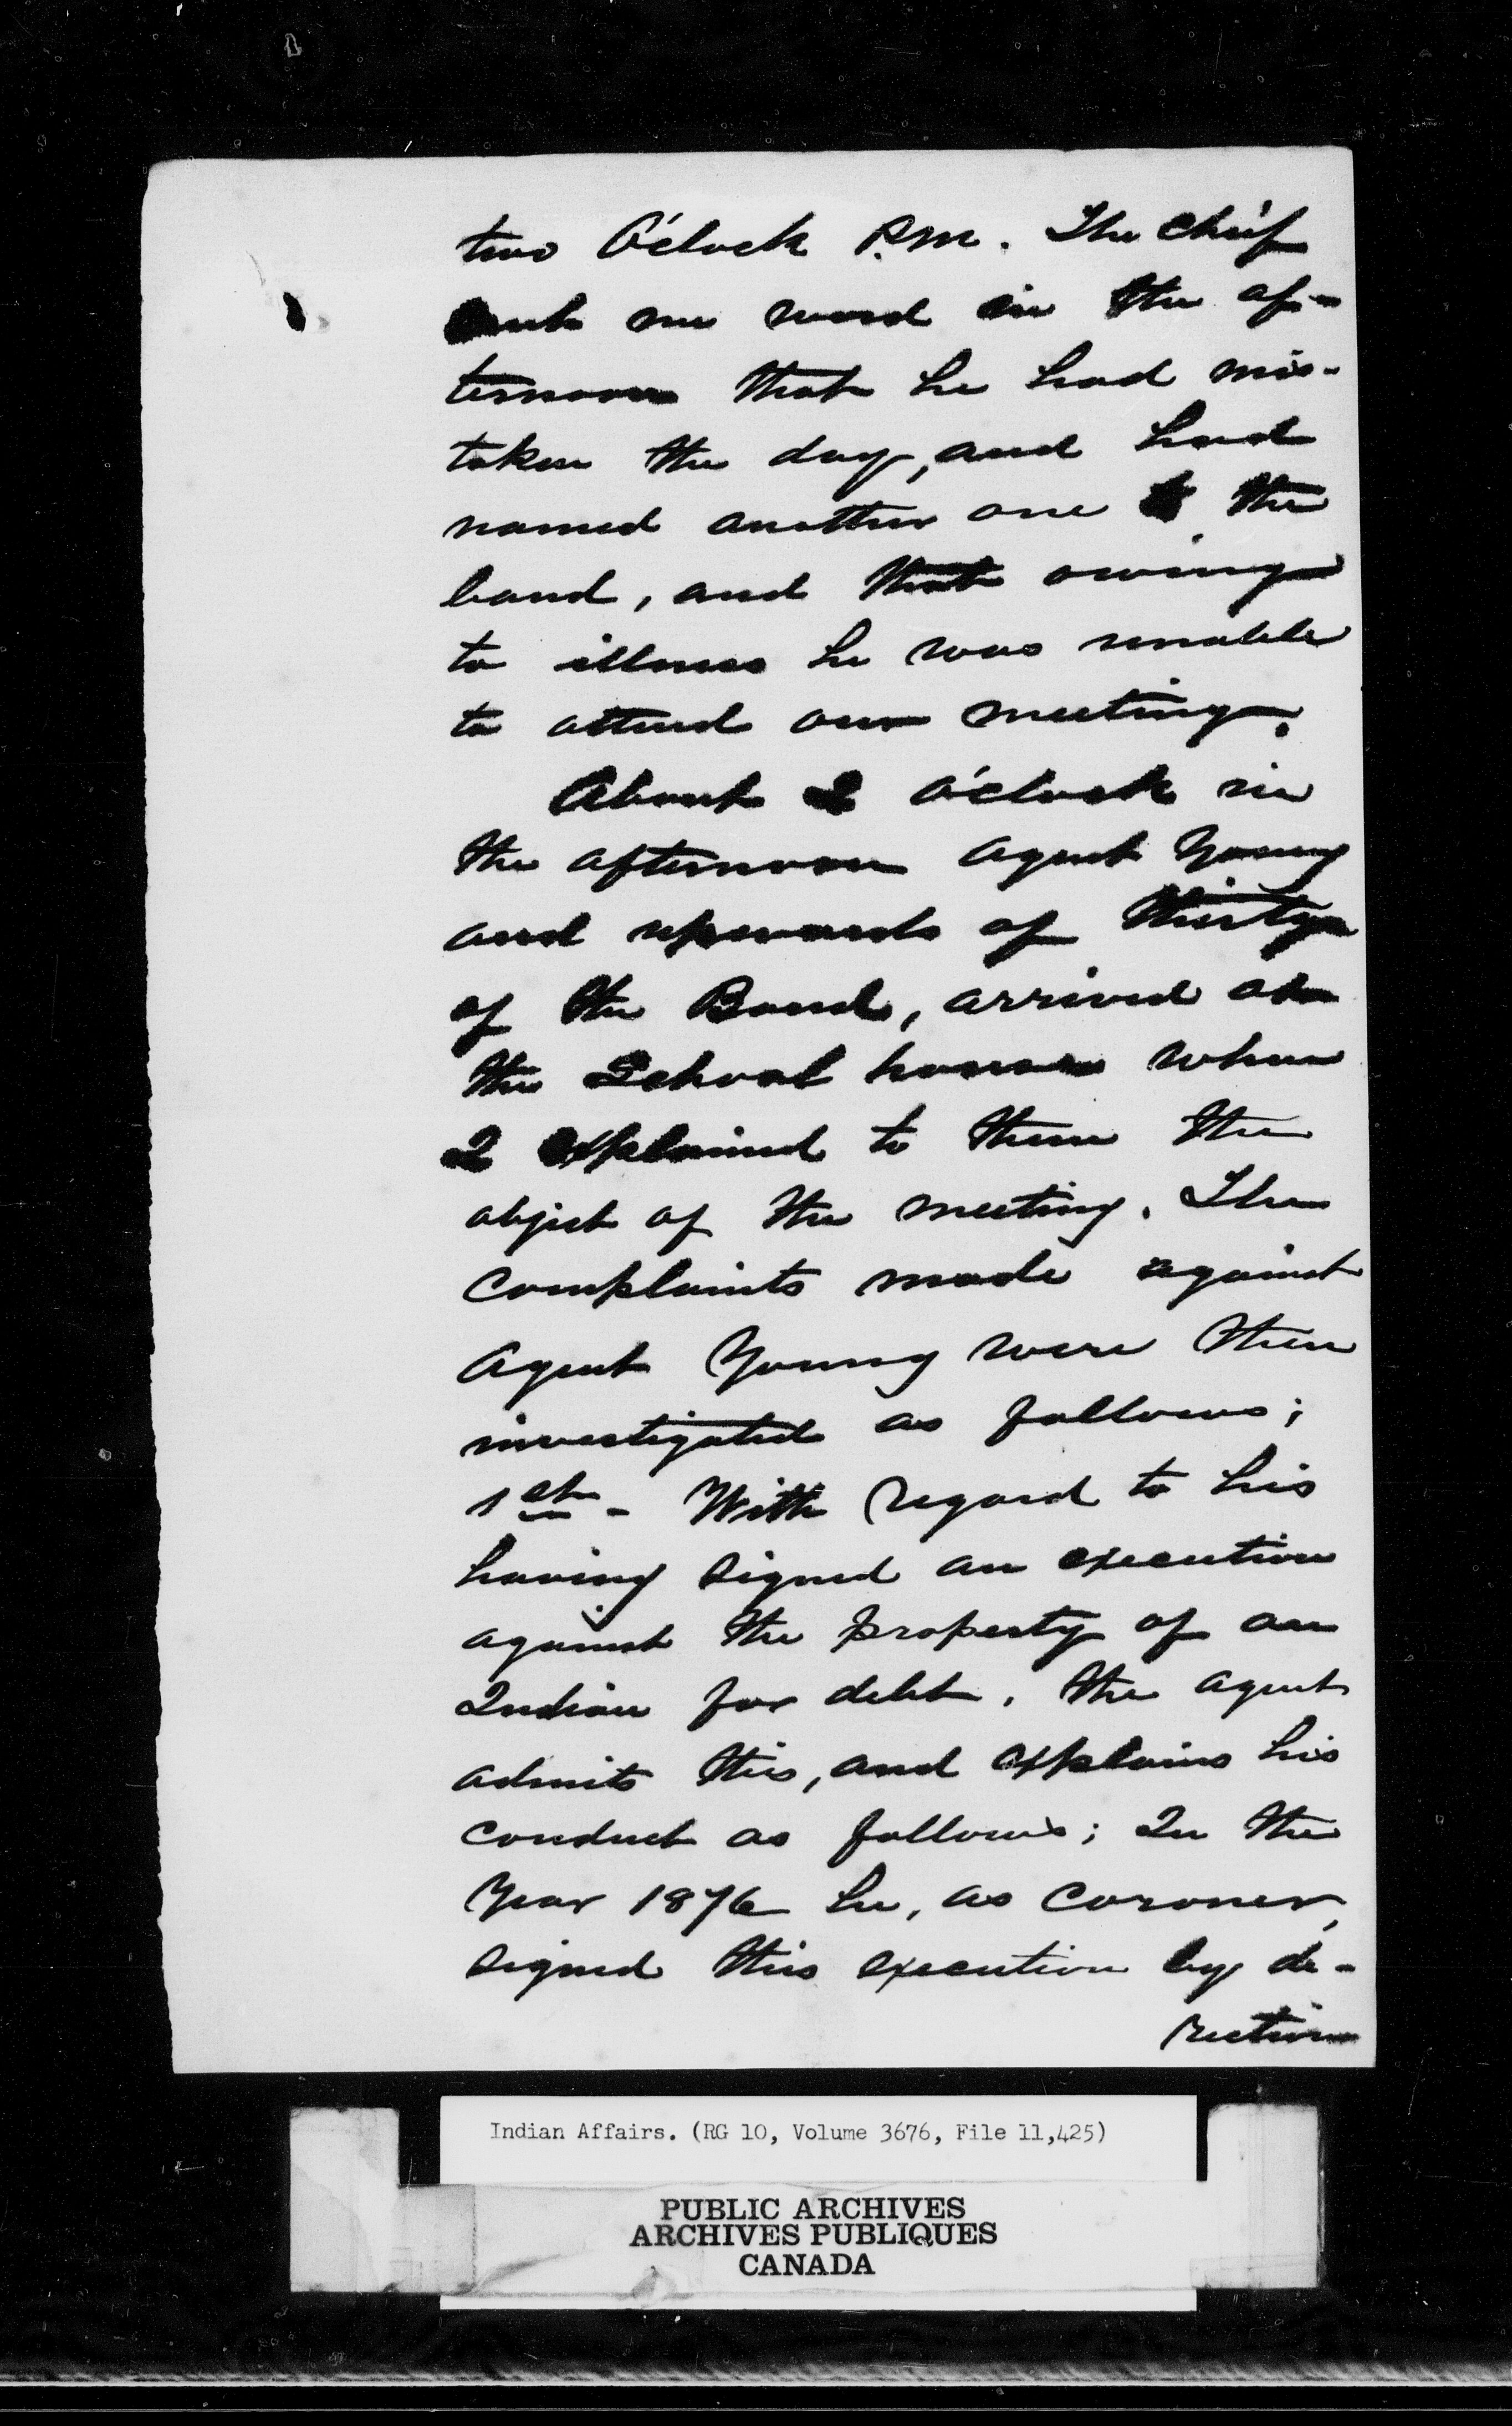 two O'clock P.M. The Chief
sent me word in the af-
ternoon that he had mis-
taken the day, and had
named another one to the
band, and that owing
to illness he was unable
to attend our meeting.
About 2 O'clock in
the afternoon Agent Young
and upwards of thirty
of the Band, arrived at
the School house when
I explained to them the
object of the meeting. The
complaints made against
Agent Young were then
investigated as follows;
1st - With regard to his
having signed an execution
against the property of an
Indian for debt. The Agent
admits this, and explains his
conduct as follows; In the
Year 1876 he, as Coroner,
signed this execution by di-
rection
Indian Affairs. (RG 10, Volume 3676, File 11,425)
PUBLIC ARCHIVES
ARCHIVES PUBLIQUES
CANADA